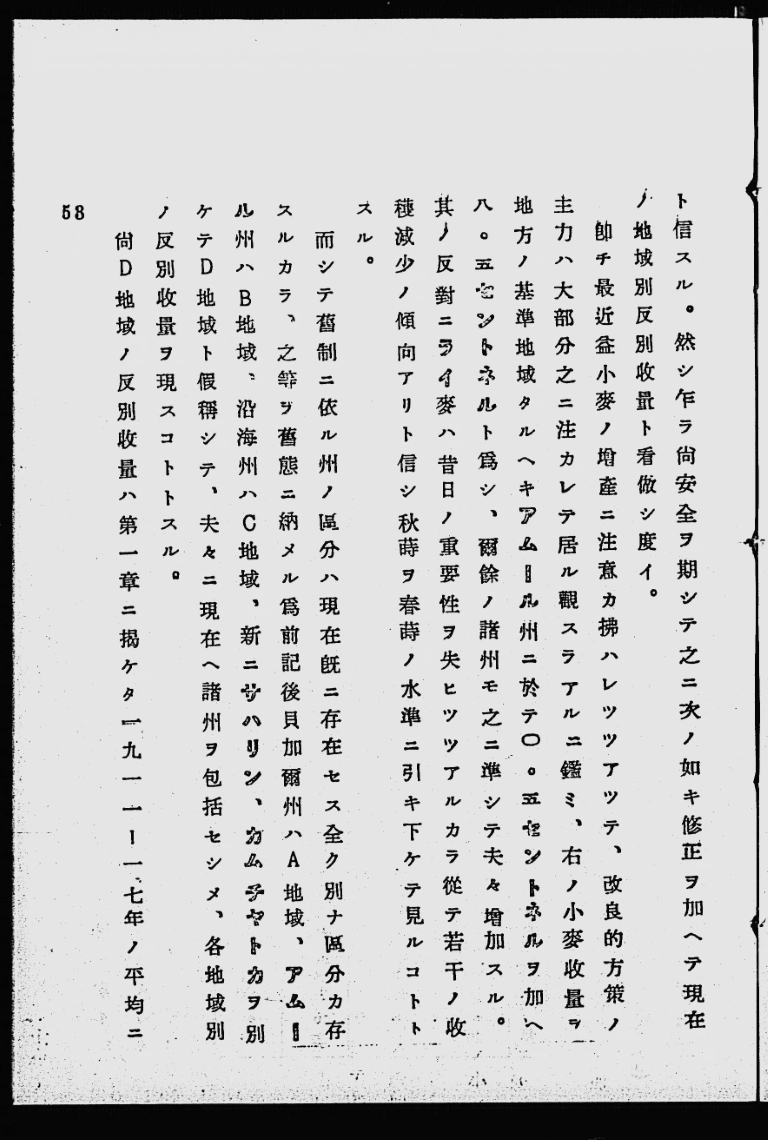 ト信スル。然シ乍ラ尚安全ヲ期シテ之ニ次ノ如キ修正ヲ加ヘテ現在
ノ地域別反別收量ト看做シ度イ。
卽チ最近益小麥ノ增產ニ注意カ拂ハレツツアツテ、改良的方策ノ
主力ハ大部分之ニ注カレテ居ル觀スラアルニ鑑ミ、右ノ小麥收量ヲ
地方ノ基準地域タルヘキアムール州ニ於テ〇。五セントネルヲ加ヘ
八。五セントネルト爲シ、爾餘ノ諸州モ之ニ準シテ夫々增加スル。
其ノ反對ニライ麥ハ昔日ノ重要性ヲ失ヒツツアルカラ從テ若干ノ收
穫減少ノ傾向アリト信シ秋蒔ヲ春蒔ノ水準ニ引キ下ケテ見ルコトト
スル。
而シテ舊制ニ依ル州ノ區分ハ現在既ニ存在セス全ク別ナ區分カ存
スルカラ、之等ヲ舊態ニ納メル爲前記後貝加爾州ハA地域、アムー
ル州ハB地域、沿海州ハC地域、新ニサハリン、カムチヤトカヲ別
ケテD地域ト假稱シテ、夫々ニ現在ヘ諸州ヲ包括セシメ、各地域別
ノ反別收量ヲ現スコトトスル。
尙D地域ノ反別收量ハ第一章ニ揭ケタ一九一一ー一七年ノ平均ニ
58